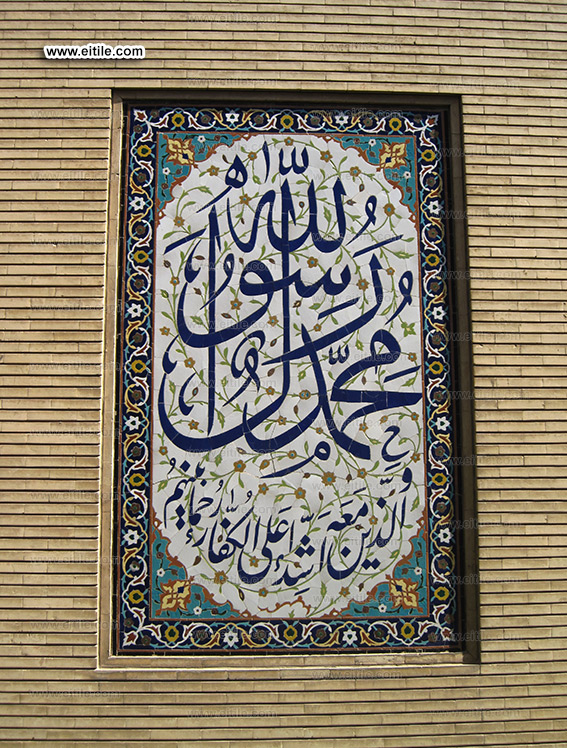 www.eitile.com
محمد رسول الله
والذین معه اشداء علی الکفار رحماء بینهم